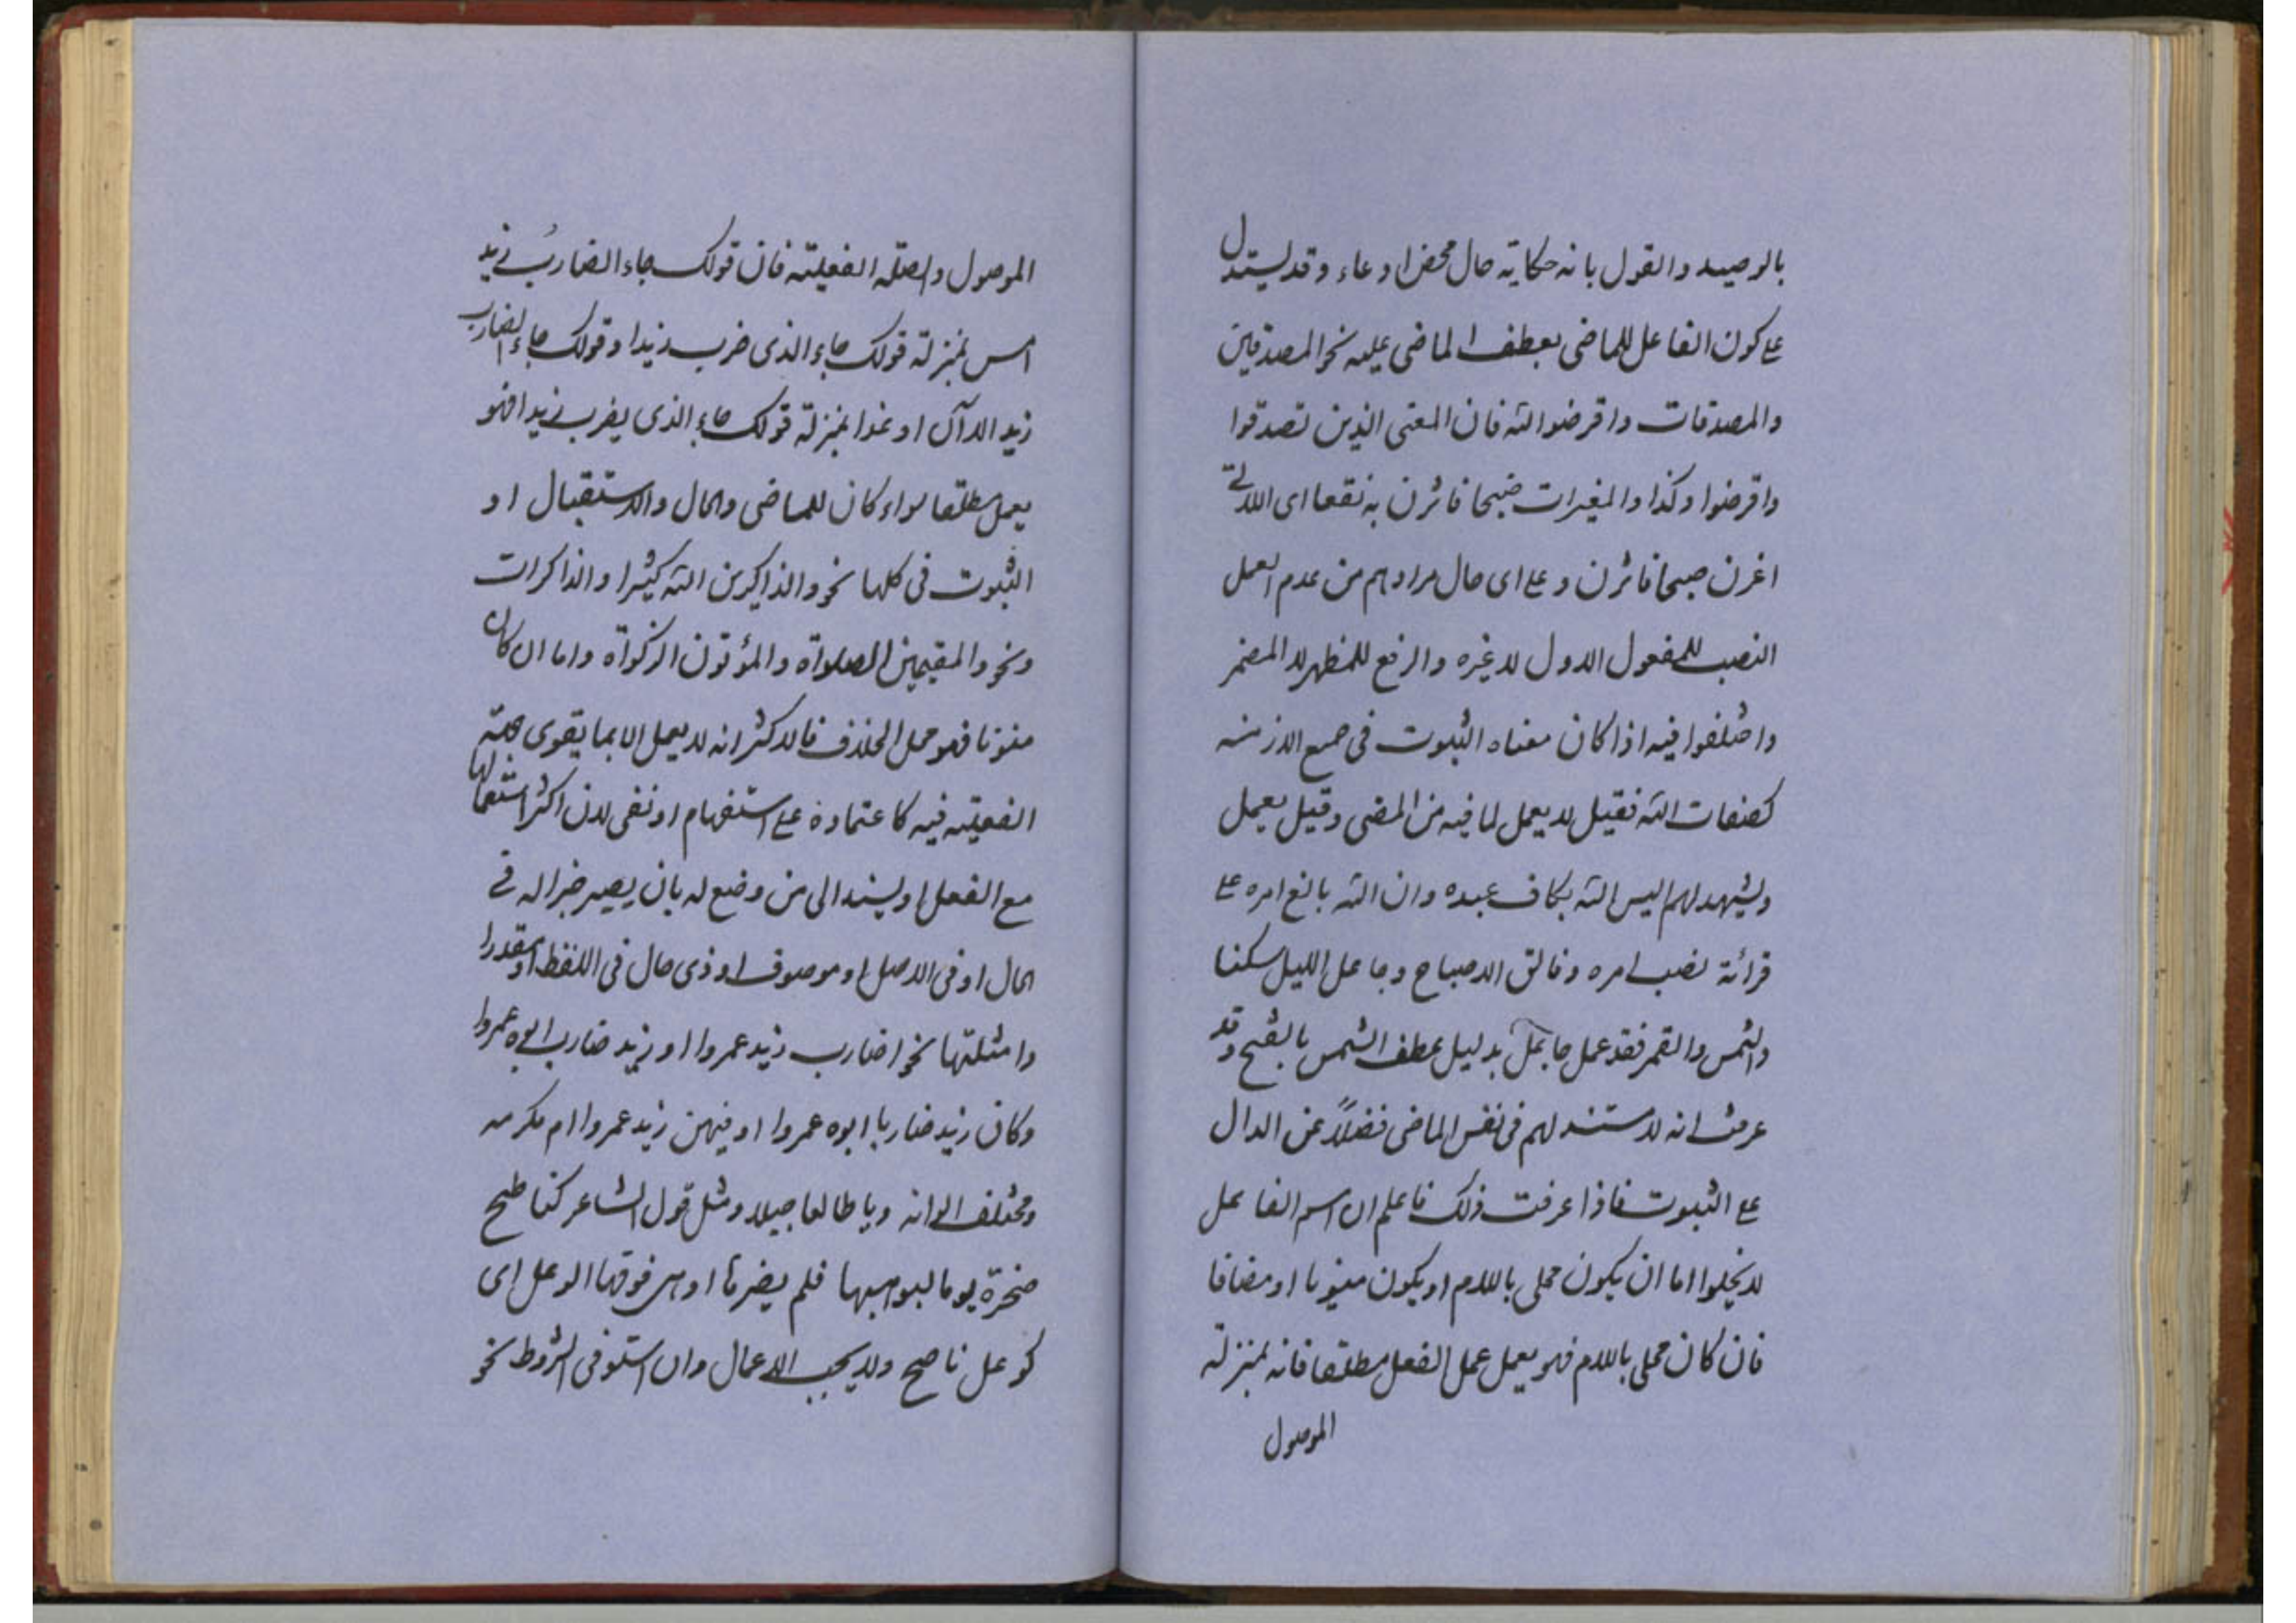 بالوصيد والقول بانه حكاية حال محض ادعاء وقد يستدل
على كون الفاعل للماضى بعطف الماضى عليه نحو المصدقين
والمصدقات واقرضوا الله فان المعنى الذين تصدقوا
واقرضوا وكذا والمغيرات ضبحا فاثرن به نقعا اى اللاتى
اغرن صبحا فاثرن وعلى اى حال مرادهم من عدم العمل
النصب للمفعول الاول لا غيره والرفع للمظهر لا المضمر
واختلفوا فيه اذا كان معناه الثبوت فى جميع الازمنه
كصفات الله فقيل لا يعمل لما فيه من المضى وقيل يعمل
ويشهد لهم اليس الله بكاف عبده وان الله بالغ امره على
قرائة نصب امره وفالق الاصباح وجاعل الليل سكنا
والشمس والقمر فقد عمل جاعل بدليل عطف الشمس بالفتح وقد
عرفت انه لا مستند لهم فى نفس الماضى فضلاً عن الدال
على الثبوت فاذا عرفت ذلك فاعلم ان اسم الفاعل
لا يخلوا اما ان يكون محلى باللام او يكون منونا او مضافا
فان كان محلى باللام فهو يعمل عمل الفعل مطلقا فانه بمنزلة
الموصول
الموصول والصلة الفعلية فان قولك جاء الضاربُ زيد
امس بمنزلة قولك جاء الذى ضرب زيدا وقولك جاء الضارب
زيد الآن او غدا بمنزلة قولك جاء الذى يضرب زيدا فهو
يعمل مطلقا سواء كان للماضى والحال والاستقبال او
الثبوت فى كلها نحو والذاكرين الله كثيرا والذاكرات
ونحو والمقيمين الصلواة والمؤتون الزكواة واما ان كان
منونا فهو محل الخلاف فالاكثر انه لا يعمل الا بما يقوى جهة
الفعلية فيه كاعتماده على استفهام او نفى لان اكثر استعمالها
مع الفعل او يسند الى من وضع له بان يصير خبرا له فى
الحال او فى الاصل او موصوف او ذى حال فى اللفظ او مقدرا
وامثلتها نحو اضارب زيد عمروا او زيد ضارب ابوه عمروا
وكان زيد ضاربا ابوه عمروا او فيهن زيد عمروا ام مكرمه
ومختلف الوانه ويا طالعا جبيلا ومثل قول الشاعر كناطح
صخرة يوما ليوهيها فلم يضرها اوهى فوقها الوعل اى
كوعل ناصح ولا يجب الاعمال وان استوفى الشروط نحو